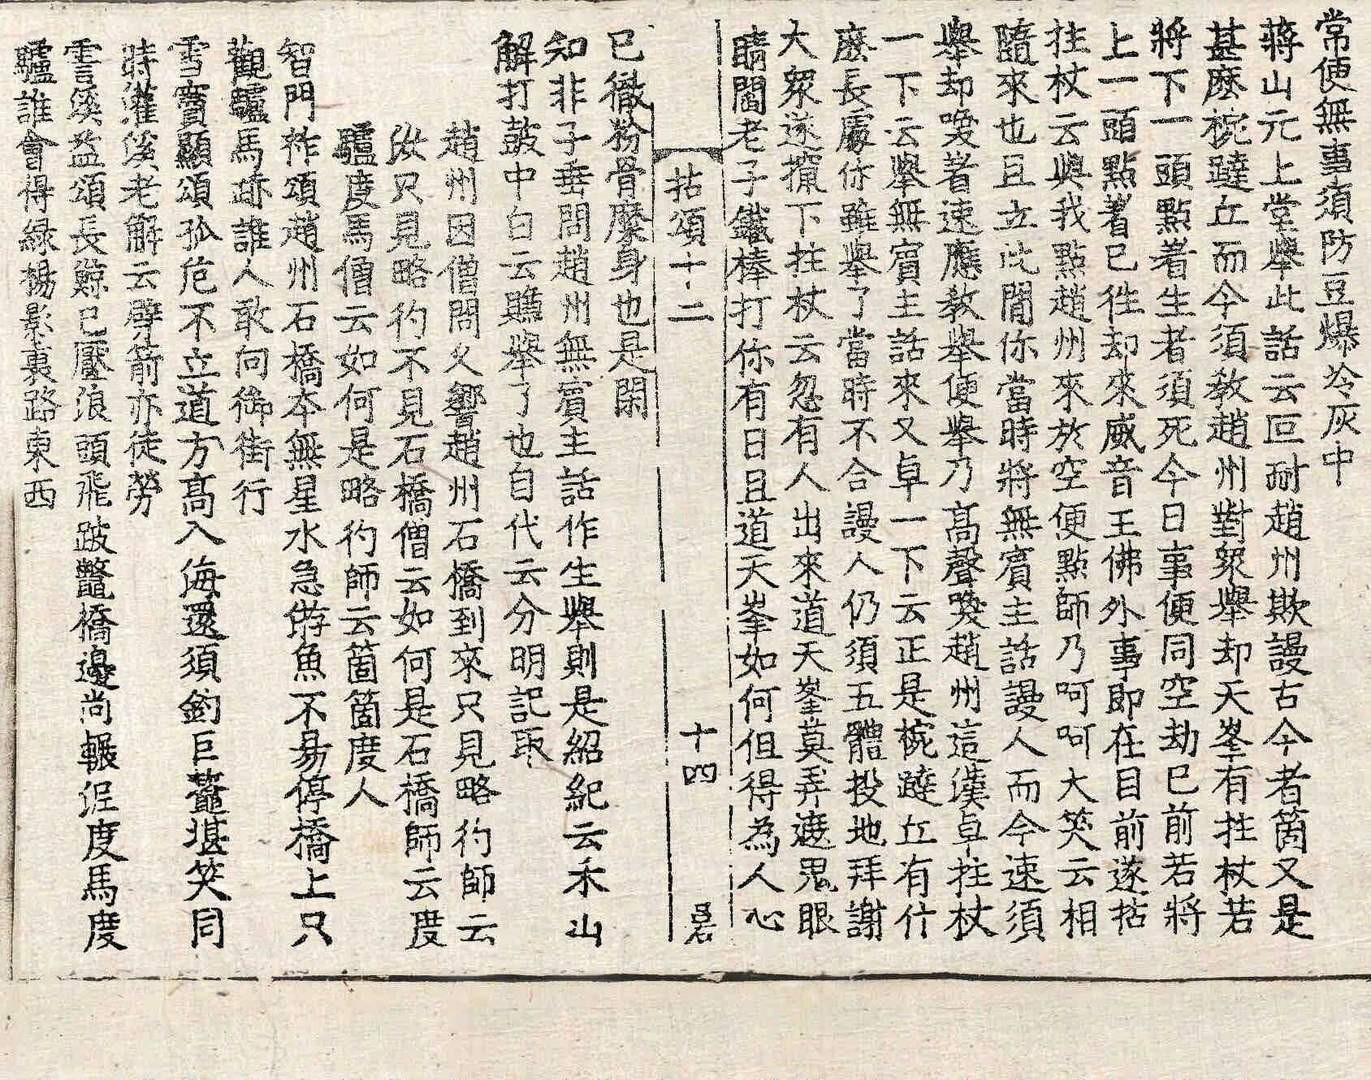 常便無事須防豆爆冷灰中
蔣山元上堂舉此話云叵耐趙州欺謾古今者箇又是
甚麽椀躂丘而今須敎趙州對衆舉却天峯有拄杖若
將下一頭點著生者須死今日事便同空劫已前若將
上一頭點著已徃却來威音王佛外事即在目前遂拈
拄杖云與我點趙州來於空便點師乃呵呵大笑云相
隨來也且立此間你當時將無賓主話謾人而今速須
舉却喚著速應敎舉便舉乃高聲喚趙州這漢卓拄杖
一下云舉無賓主話來又卓一下云正是椀躂丘有什
麽長處你雖舉了當時不合謾人仍須五體投地拜謝
大衆遂攛下拄杖云忽有人出來道天峯莫弄遮鬼眼
睛閻老子鐵棒打你有日且道天峯如何但得為人心
拈頌十二
十四
呂石
已徹粉骨糜身也是閑
知非子垂問趙州無賓主話作生舉則是紹紀云禾山
解打鼓中白云鷰舉了也自代云分明記取
趙州因僧問久響趙州石橋到來只見略彴師云
汝只見略彴不見石橋僧云如何是石橋師云度
驢度馬僧云如何是略彴師云箇箇度人
智門祚頌趙州石橋本無星水急游魚不易停橋上只
觀驢馬跡誰人敢向御街行
雪竇顯頌孤危不立道方高入海還須釣巨鼇堪笑同
時灌溪老解云劈箭亦徒勞
霅溪益頌長鯨已壓浪頭飛跛鼈橋邊尚輾泥度馬度
驢誰會得緑楊影裏路東西